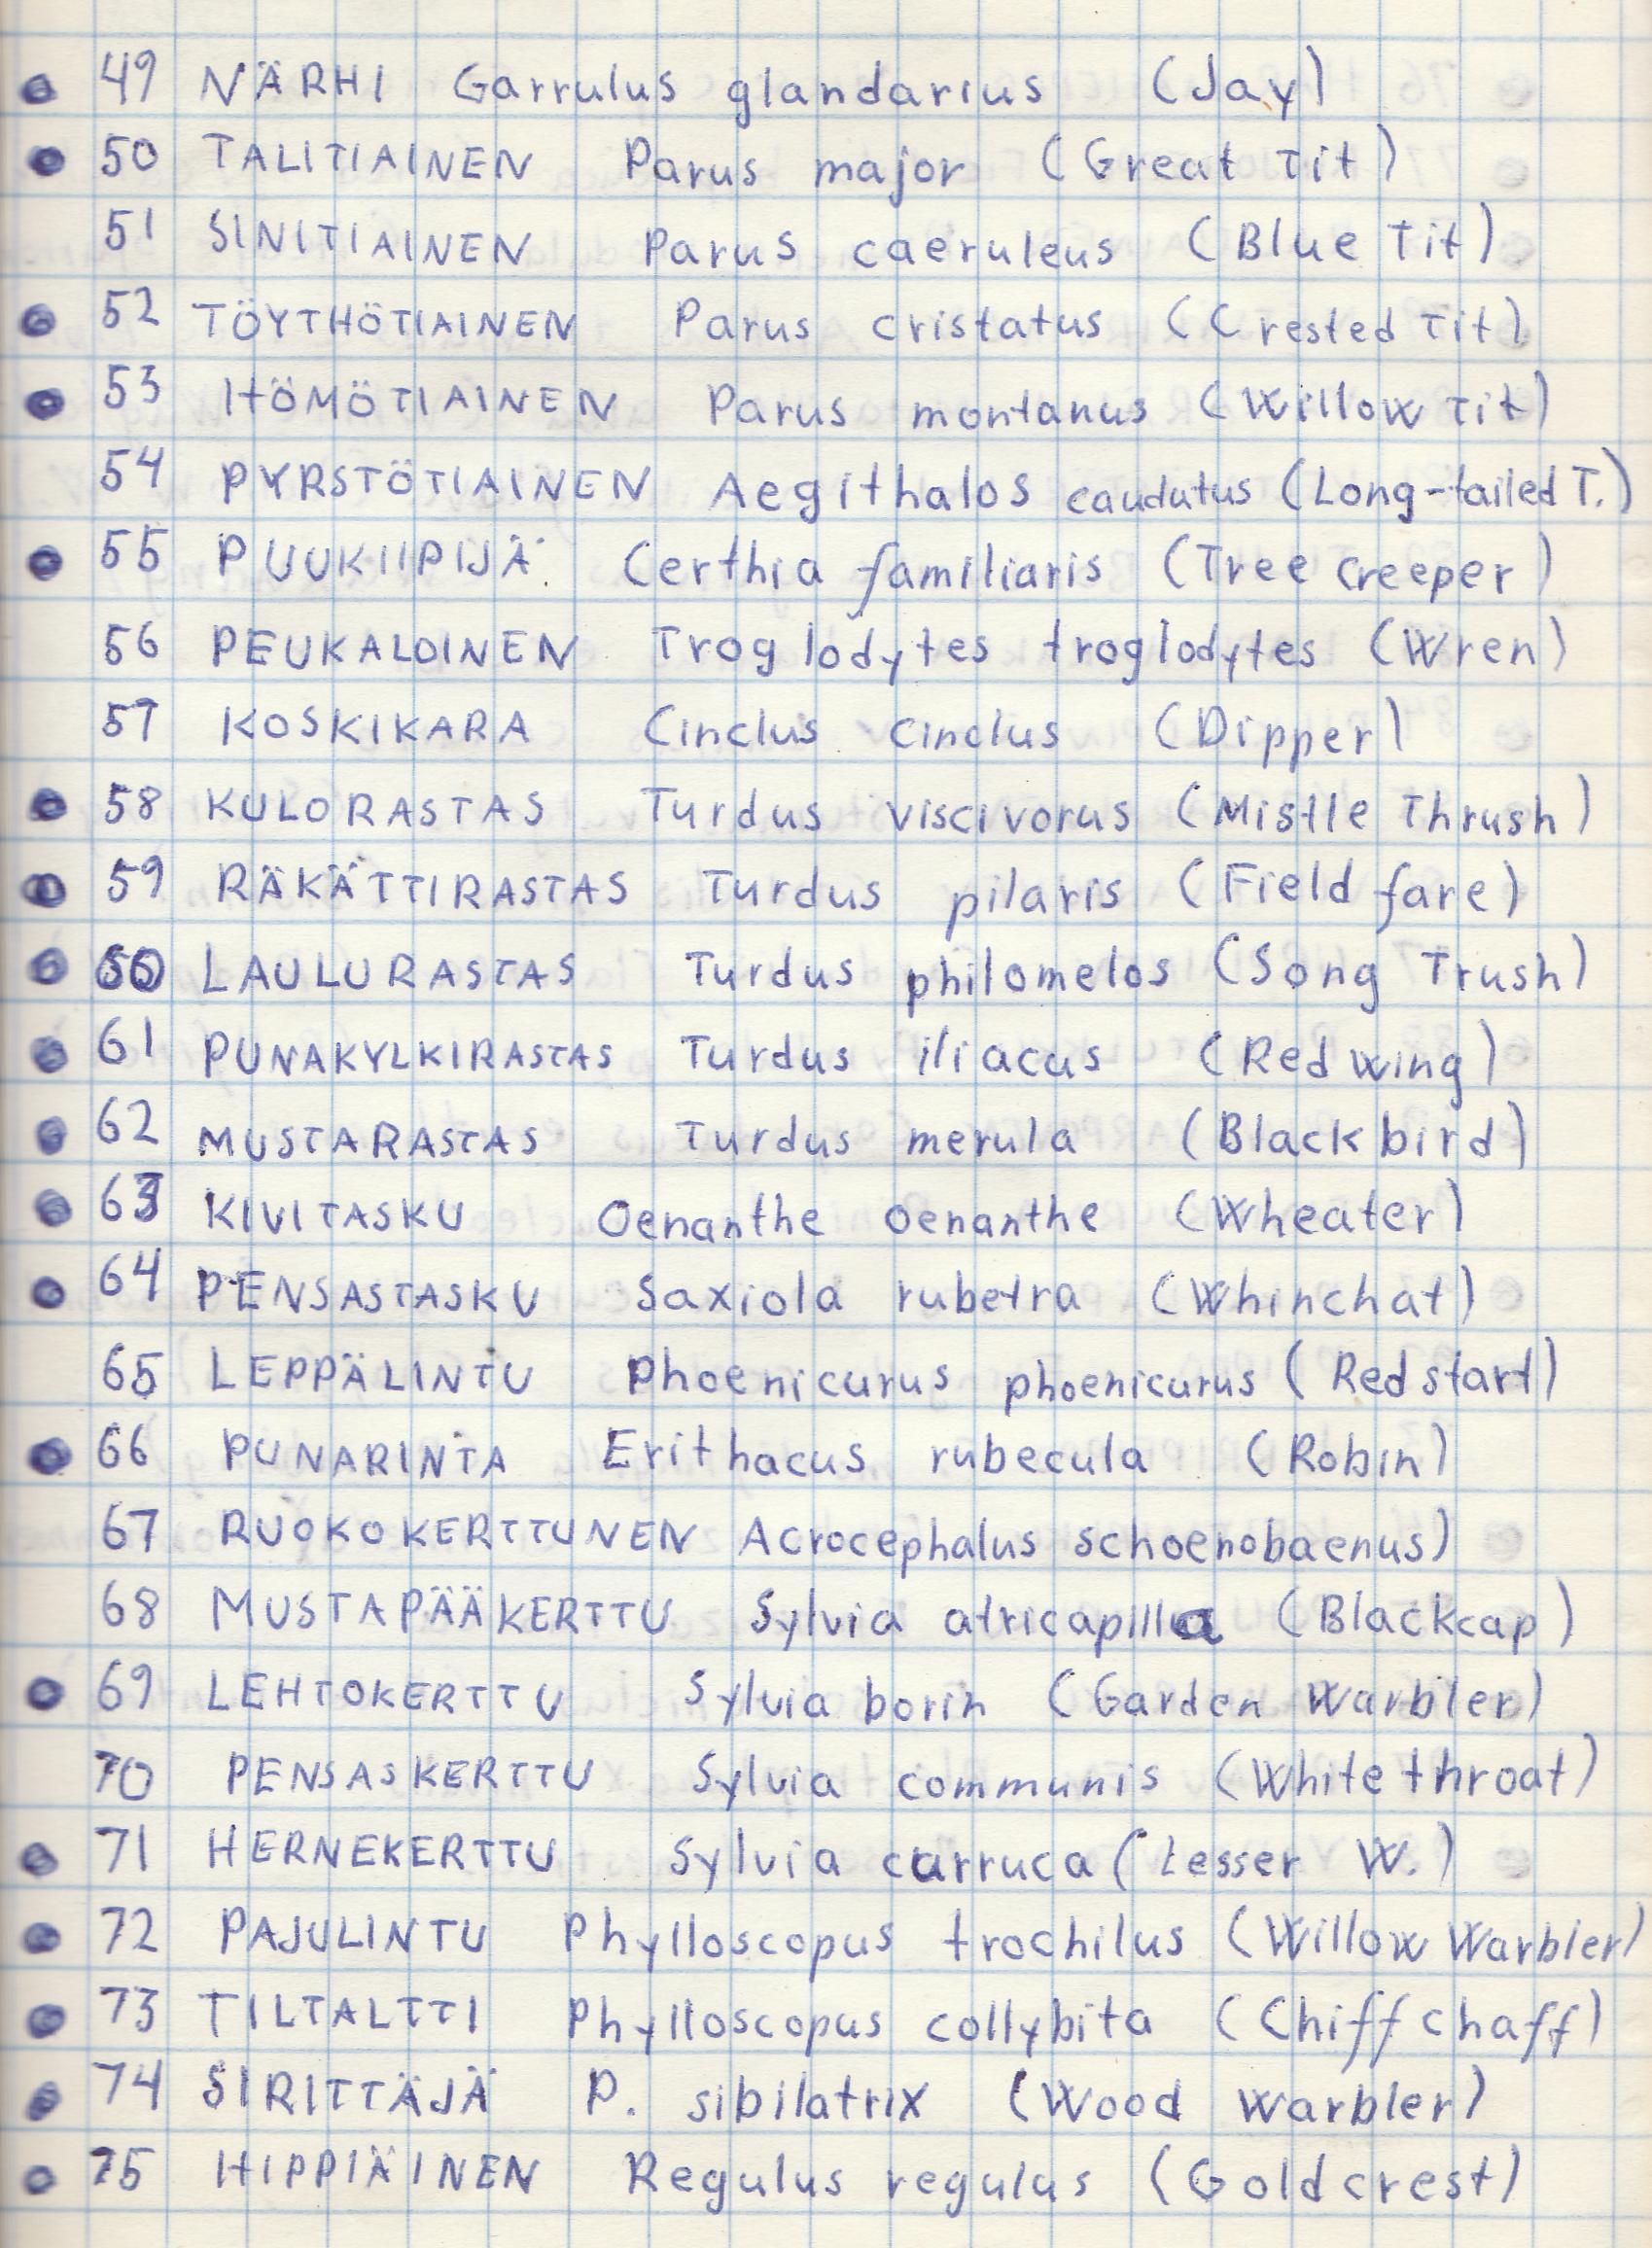 49 NÄRHI Garrulus glandarius (Jay)
50 TALITIAINEN Parus major (Great Tit)
51 SINITIAINEN Parus caeruleus (Blue Tit)
52 TÖYTHÖTIAINEN Parus cristatus (Crested Tit)
53 HÖMÖTIAINEN Parus montanus (Willow Tit)
54 PYRSTÖTIAINEN Aegithalos caudatus (Long-tailed T.)
55 PUUKIIPIJÄ Certhia familiaris (Tree creeper)
56 PEUKALOINEN Troglodytes troglodytes (Wren)
57 KOSKIKARA Cinclus cinclus (Dipper)
58 KULORASTAS Turdus viscivorus (Mistle Thrush)
59 RÄKÄTTIRASTAS Turdus pilaris (Field fare)
60 LAULURASTAS Turdus philomelos (Song Trush)
61 PUNAKYLKIRASTAS Turdus iliacus (Red wing)
62 MUSTARASTAS Turdus merula (Black bird)
63 KIVITASKU Oenanthe oenanthe (Wheater)
64 PENSASTASKU Saxiola rubetra (Whinchat)
65 LEPPÄLINTU Phoenicurus phoenicurus (Red start)
66 PUNARINTA Erithacus rubecula (Robin)
67 RUOKOKERTTUNEN Acrocephalus schoenobaenus)
68 MUSTAPÄÄKERTTU Sylvia atricapilla (Blackcap)
69 LEHTOKERTTU Sylvia borin (Garden Warbler)
70 PENSASKERTTU Sylvia communis (White throat)
71 HERNEKERTTU Sylvia curruca (Lesser W.)
72 PAJULINTU Phylloscopus trochilus (Willow Warbler)
73 TILTALTTI Phylloscopus collybita (Chiff chaff)
74 SIRITTÄJÄ P. sibilatrix (Wood warbler)
75 HIPPIÄINEN Regulus regulus (Gold crest)